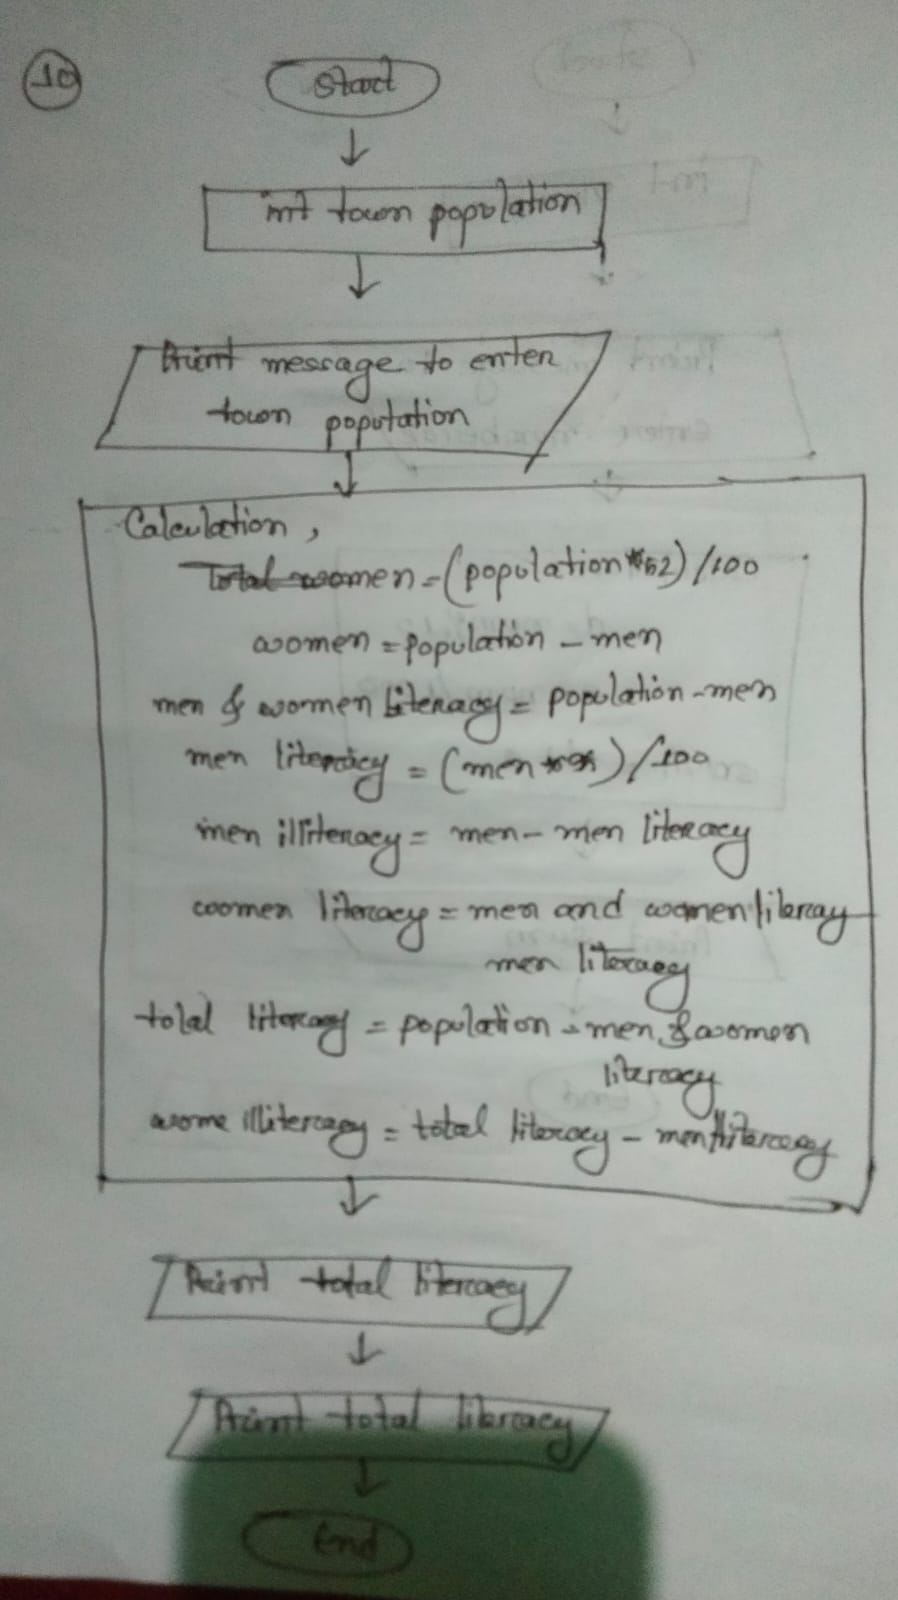 10
Start
int town population
Print message to enter
town population
Calculation,
Total women = (population * 52) / 100
women = population - men
men & women literacy = population - men
men literacy = (men * ) / 100
men illiteracy = men - men literacy
women literacy = men and women literacy
men literacy
total literacy = population - men & women
literacy
wome illiteracy = total literacy - men literacy
Print total literacy
Print total literacy
End